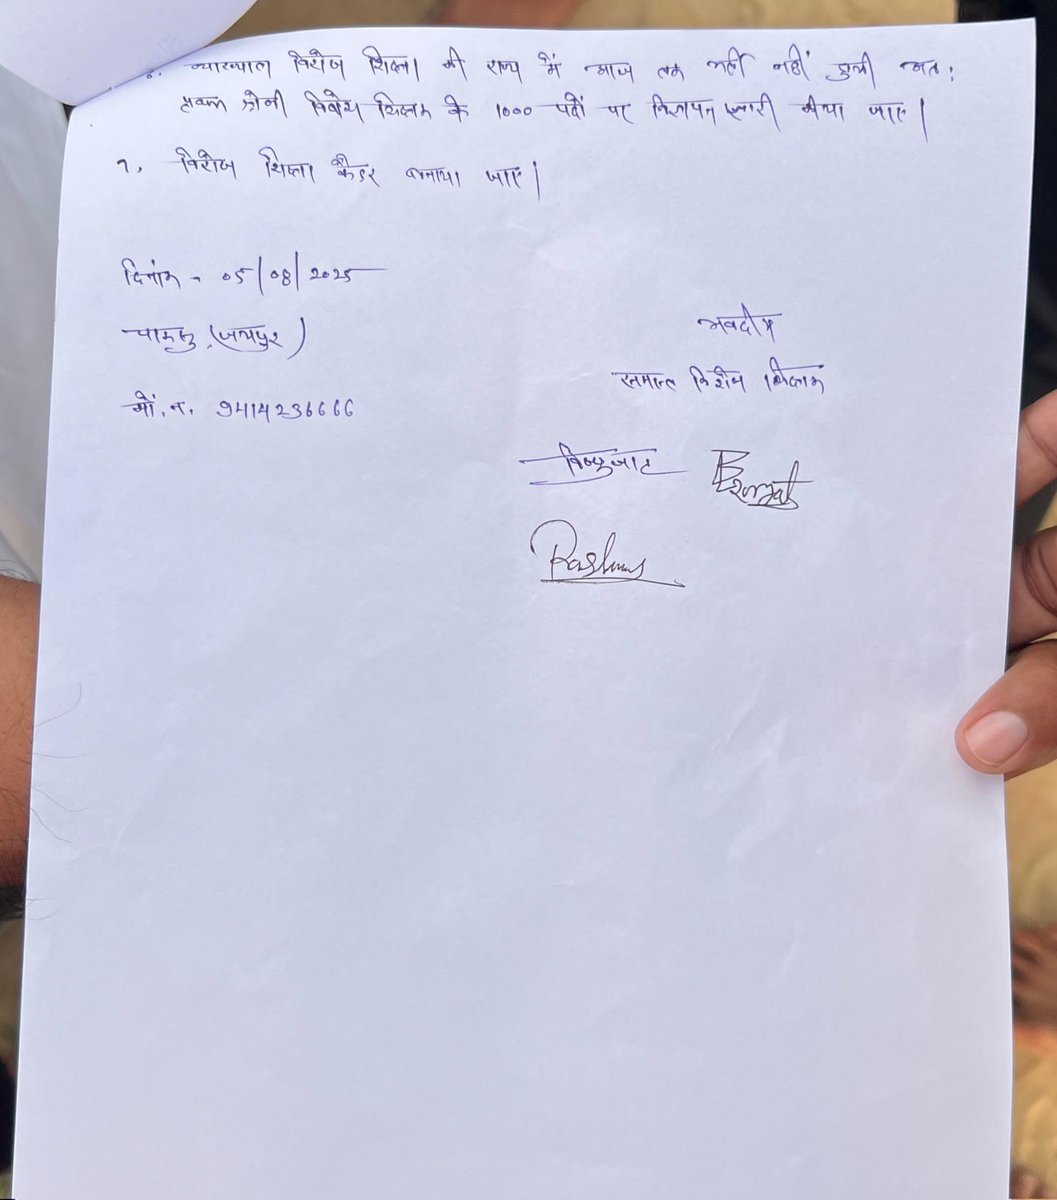 व्याख्याता विशेष शिक्षा की राज्य में आज तक भर्ती नहीं हुयी अतः
स्कूल विशेष शिक्षक के 1000 पदों पर विज्ञापन जारी किया जाए।
7. विशेष शिक्षा कैडर बनाया जाए।
दिनांक - 05/08/2025
चाकसू (जयपुर)
मो. न. 9414236666
भवदीय
समस्त विशेष शिक्षक
विष्णु जाट